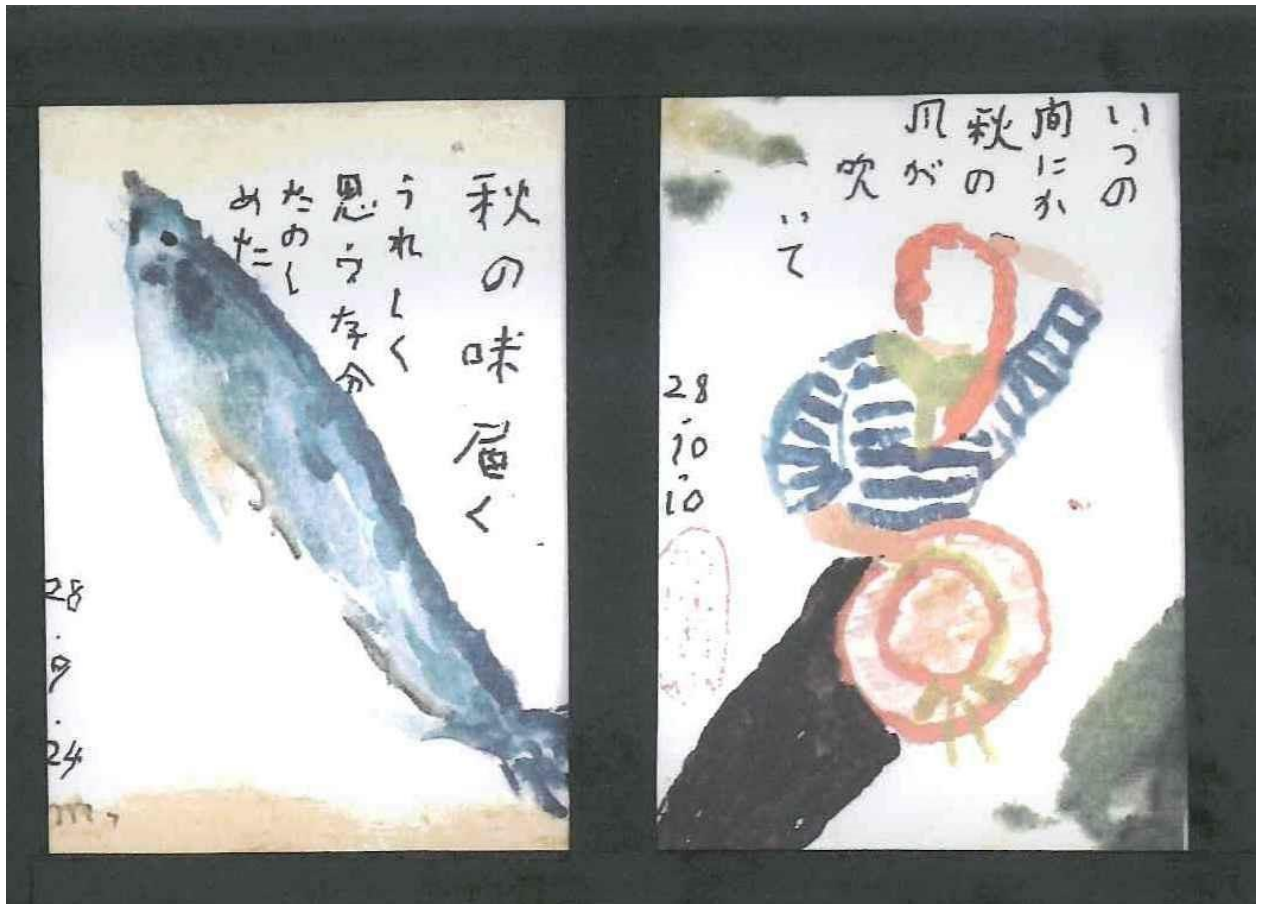 秋の味届く
うれしく
思う存分
たのし
めた
28.9.24
いつの
間にか
秋の
風が
吹
いて
28.10.10